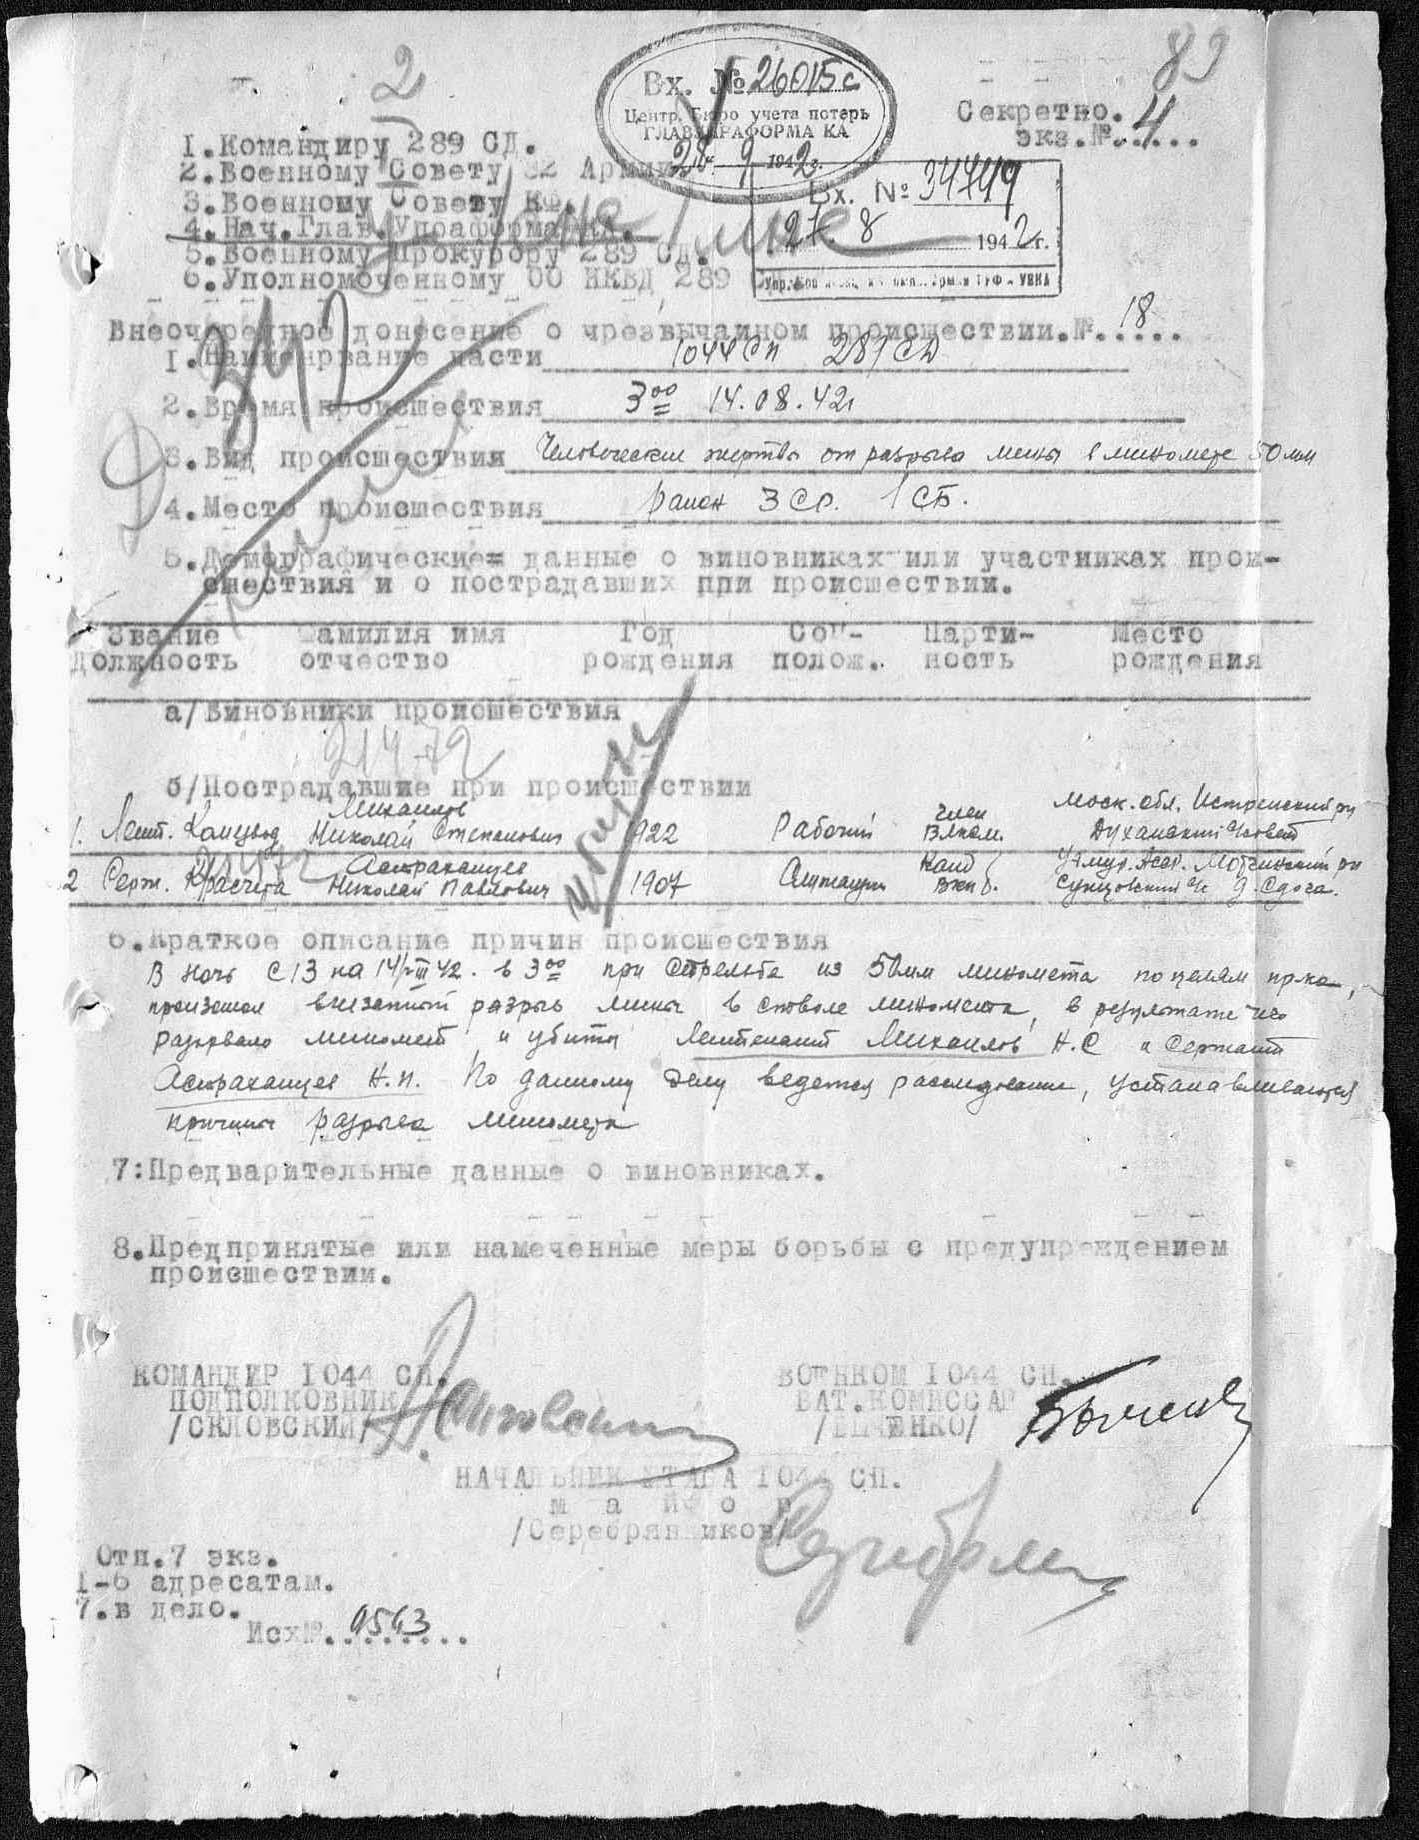 89
2
Вх. № 26015с
Центр. Бюро учета потерь
ГЛАВУПРАФОРМА КА
28 9 1942г.
Секретно.
экз.№ 4...
1.Командиру 289 СД.
2.Военному Совету 32 Армии
3.Военному Совету КФ.
4.Нач.Глав.Упраформа КА.
5.Военному Прокурору 289 СД.
6.Уполномоченному ОО НКВД 289 СД.
Вх. № 34749
27. 8 1942г.
Внеочередное донесение о чрезвычайном происшествии.№.18....
1.Наименрвание части 1044 СП 289 СД
2.Время происшествия 3 00 14.08.42г
3.Вид происшествия Человеческие жертвы от разрыва мины в миномете 50мм
4.Место происшествия район 3 СР. 1 СБ.
5.Демографические= данные о виновниках или участниках прои-
сшествия и о пострадавших при происшествии.
Звание Фамилия имя Год Соц- Парти- Место
Должность отчество рождения полож. ность рождения
а/Виновники происшествия
21472
б/Пострадавшие при происшествии
1. Лейт. Ком.взвод Михайлов Николай Степанович 1922 Рабочий член ВЛКСМ. Моск. обл. Истринский рн Духанский с/совет
2 Серж. К/расчета Астраханцев Николай Павлович 1907 Служащий Канд ВКП б. Удмур. Асср. Можгинский рн Сундовский с/с д. Сдога.
6.Краткое описание причин происшествия
В ночь с 13 на 14/VIII 42. в 3 00 при стрельбе из 50мм миномета по целям пр-ка,
произошел внезапный разрыв мины в стволе миномета, в результате чего
разорвало миномет и убиты Лейтенант Михайлов Н.С и Сержант
Астраханцев Н.П. По данному делу ведется расследование, устанавливаются
причины разрыва миномета
7:Предварительные данные о виновниках.
8.Предпринятые или намеченные меры борьбы с предупреждением
происшествии.
КОМАНДИР 1044 СП. ВОЕНКОМ 1044 СП.
ПОДПОЛКОВНИК БАТ.КОМИССАР
/СКЛОВСКИЙ/ /БЫЧЕНКО/
НАЧАЛЬНИК ШТАБА 1044 СП.
м а й о р
/Серебрянников/
Отп.7 экз.
1-6 адресатам.
7.в дело.
Исх№.0543....